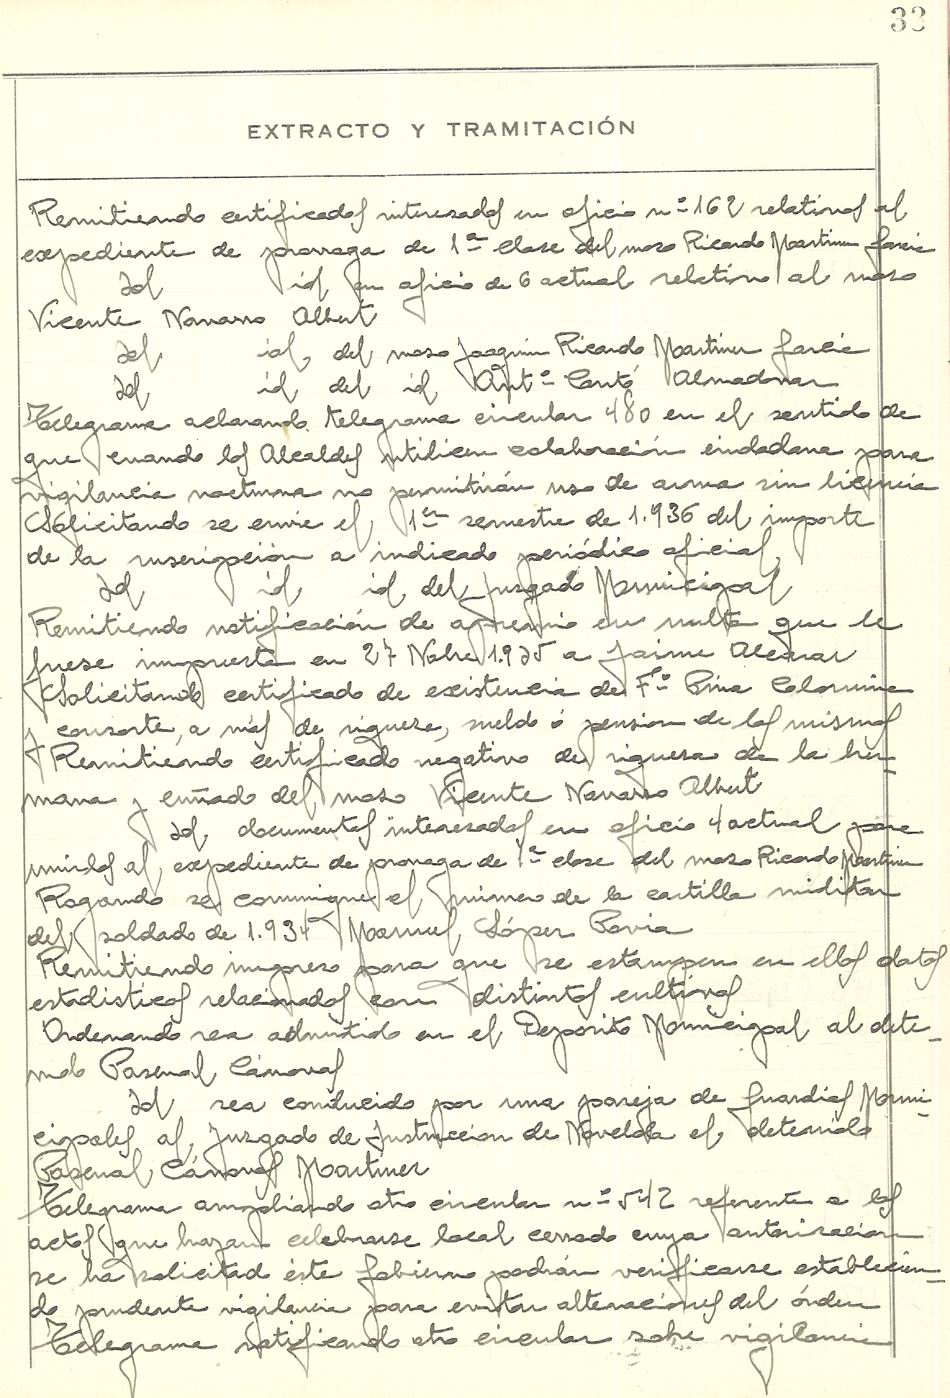 33
EXTRACTO Y TRAMITACIÓN
Remitiendo certificados interesados en oficio nº 162 relativos al
expediente de prorraga de 1ª clase del mozo Ricardo Martinez Garcia
Id id en oficio de 6 actual relativo al mozo
Vicente Navarro Albert
Id id, del mozo Joaquin Ricardo Martinez Garcia
Id id del id Antº Cantó Almadovar
Telegrama aclarando telegrama circular 480 en el sentido de
que cuando los Alcaldes utilicen colaboración ciudadana para
vigilancia nocturna no permitirán uso de arma sin licencia
Solicitando se envie el 1er semestre de 1.936 del importe
de la suscripción a indicado periódico oficial,
Id id, id, del Juzgado Municipal
Remitiendo notificación de apremio en multa que le
fuese impuesta en 27 Nobre 1.935 a Jaime Alcaraz
Solicitando certificado de existencia de Fº Pina Calomina
y consorte, a más de riqueza, sueldo ó pension de los mismos
Remitiendo certificado negativo de riqueza de la her-
mana y cuñado del mozo Vicente Navarro Albert
Id, documentos interesados en oficio 4 actual para
unirlos al, expediente de prorraga de 1ª clase del mozo Ricardo Martinez
Rogando se comunique el número de la cartilla militar
del soldado de 1.934 Manuel, López Pavia
Remitiendo impreso para que se estampen en ellos datos
estadisticos relacionados con distintos cultivos
Ordenando sea admitido en el Deposito Municipal al dete-
nido Pascual Cánovas
Id sea conducido por una pareja de Guardias Muni-
cipales al, Juzgado de Instruccion de Novelda el, detenido
Pascual Cánovas Martinez
Telegrama ampliando otro circular nº 542 referente a los
actos que hayan celebrarse local cerrado cuya autorización
se ha solicitad éste Gobierno podrán verificarse establecien-
do prudente vigilancia para evitar alteraciones del órden
Telegrama ratificando otro circular sobre vigilancia